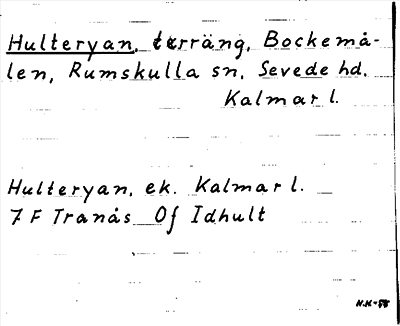 Hulteryan, terräng, Bockemå-
len, Rumskulla sn, Sevede hd.
Kalmar l.
Hulteryan, ek. Kalmar l.
7 F Tranås Of Idhult
N.N-55